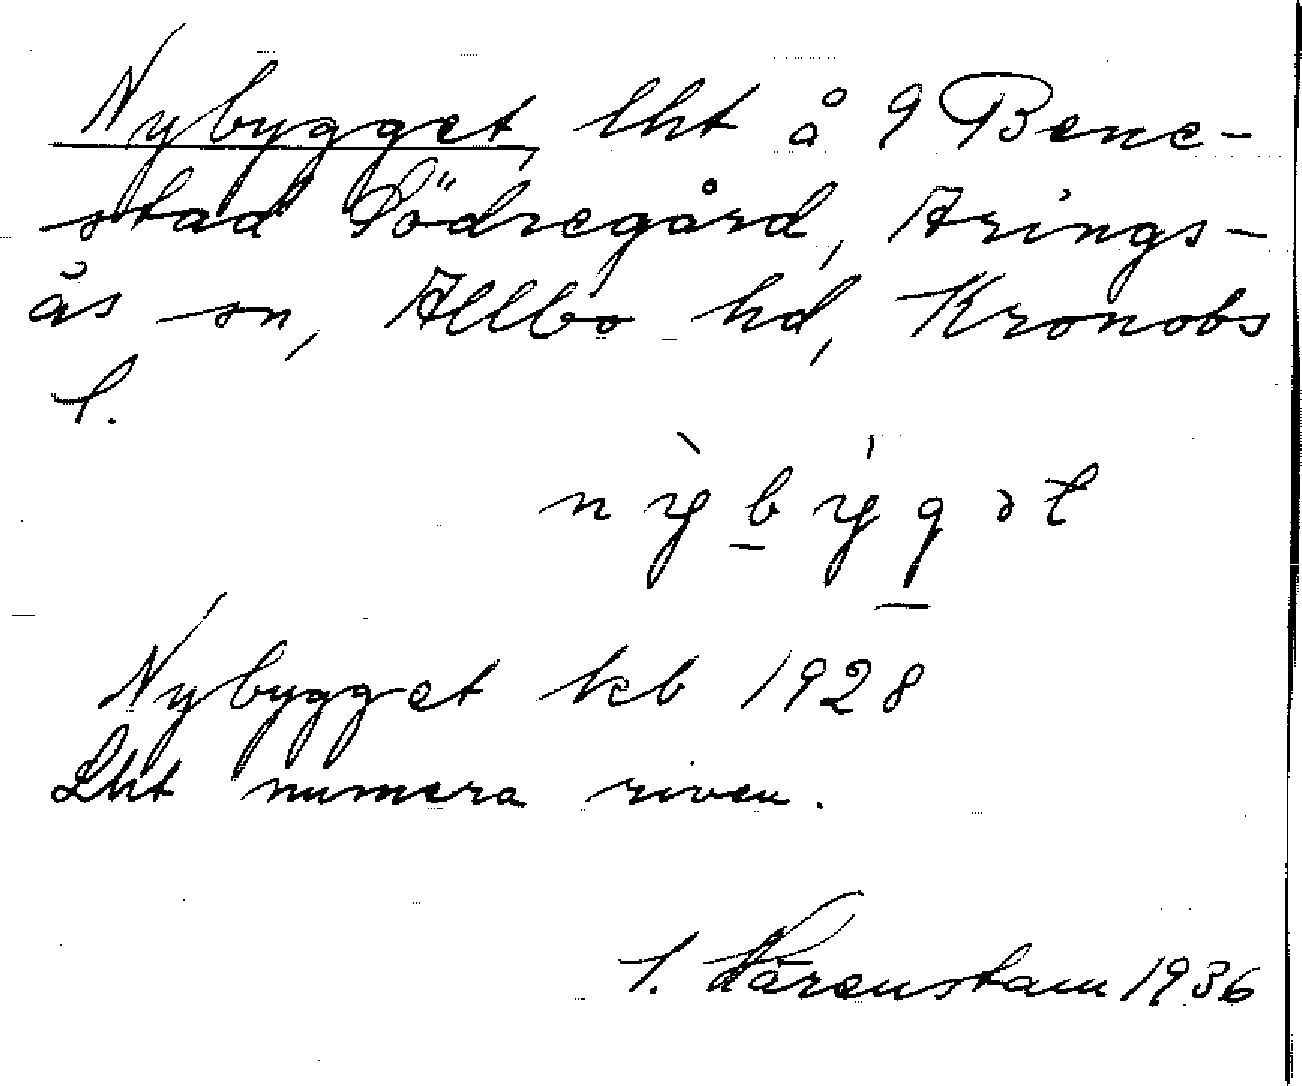 Nybygget, lht å 9 Bene-
stad Södregård, Arings-
ås sn, Allbo hd, Kronobs
l.
nỳbýgət
Nybygget kb 1928
Lht numera riven.
1936